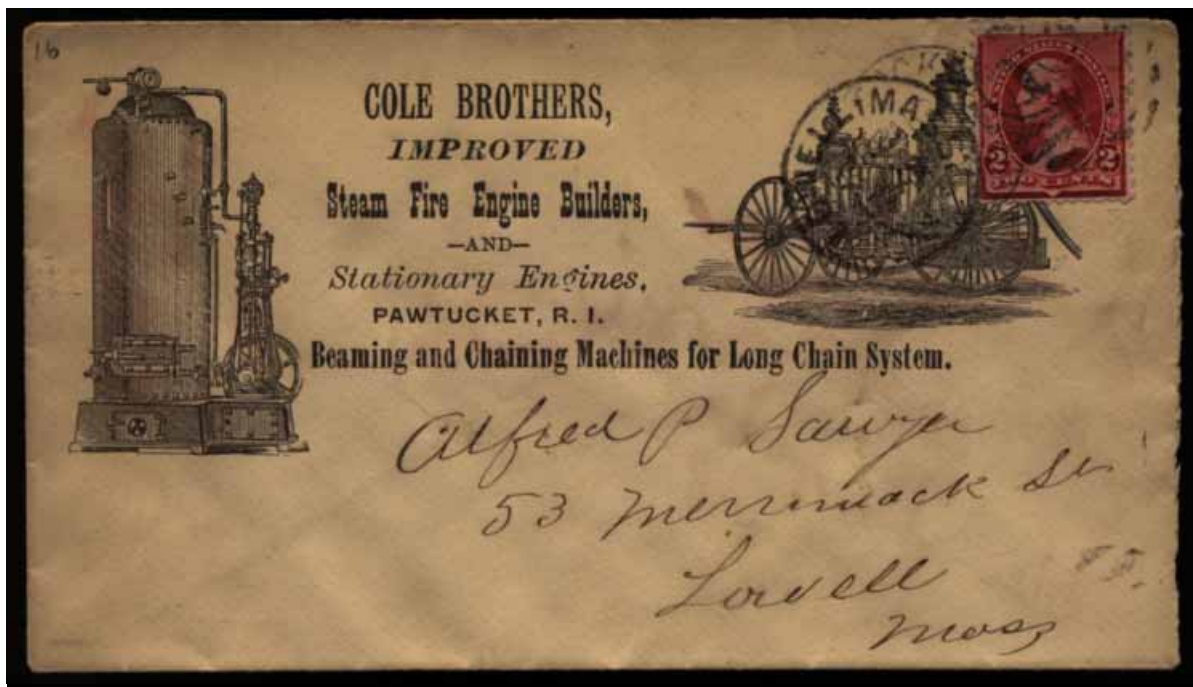 16
COLE BROTHERS,
IMPROVED
Steam Fire Engine Builders,
—AND—
Stationary Engines,
PAWTUCKET, R. I.
Beaming and Chaining Machines for Long Chain System.
2 2
Alfred P Sawyer
53 Merrimack St
Lowell
Mass